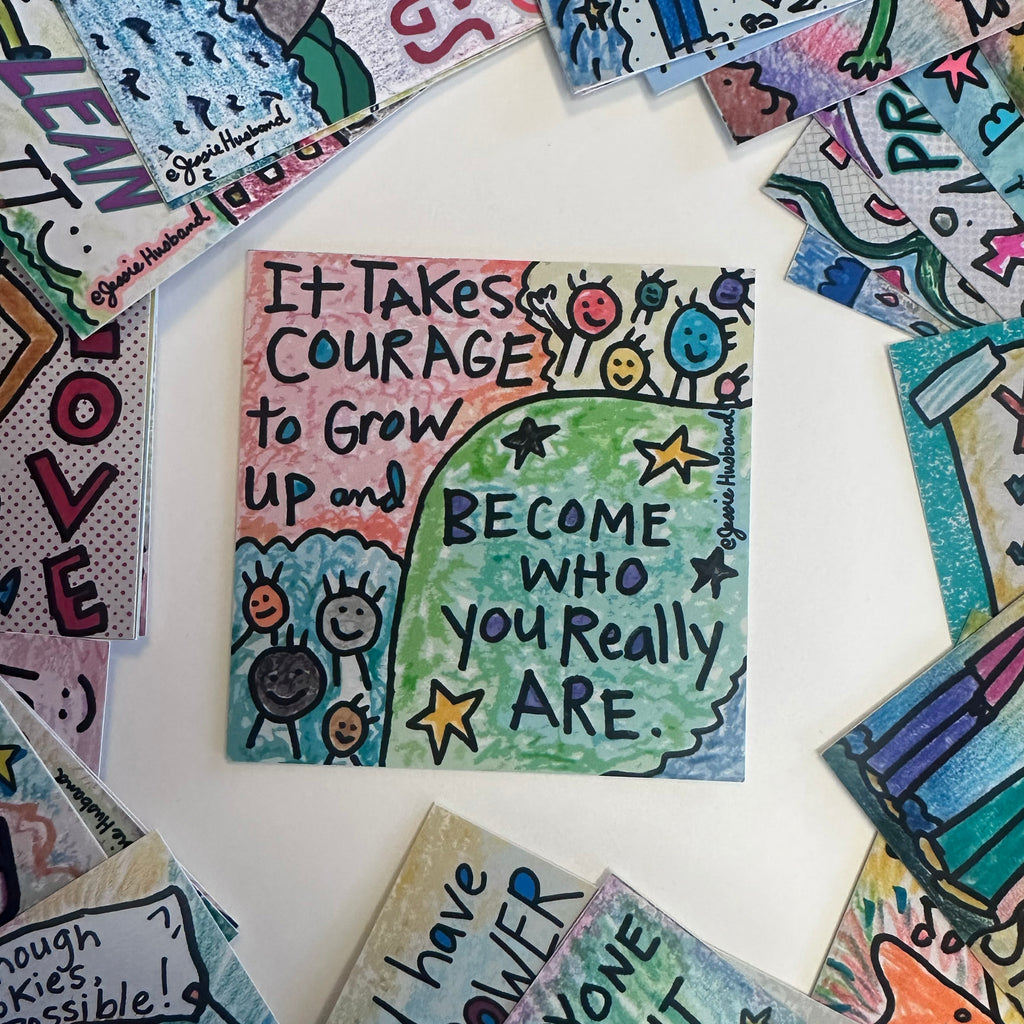 It Takes
COURAGE
to Grow
Up and
BECOME
WHO
you Really
ARE.
©Jessie Husband
LEAN
IT
©Jessie Husband
©Jessie Husband
GS
PR
OVE
have
OWER
YONE
ossible!